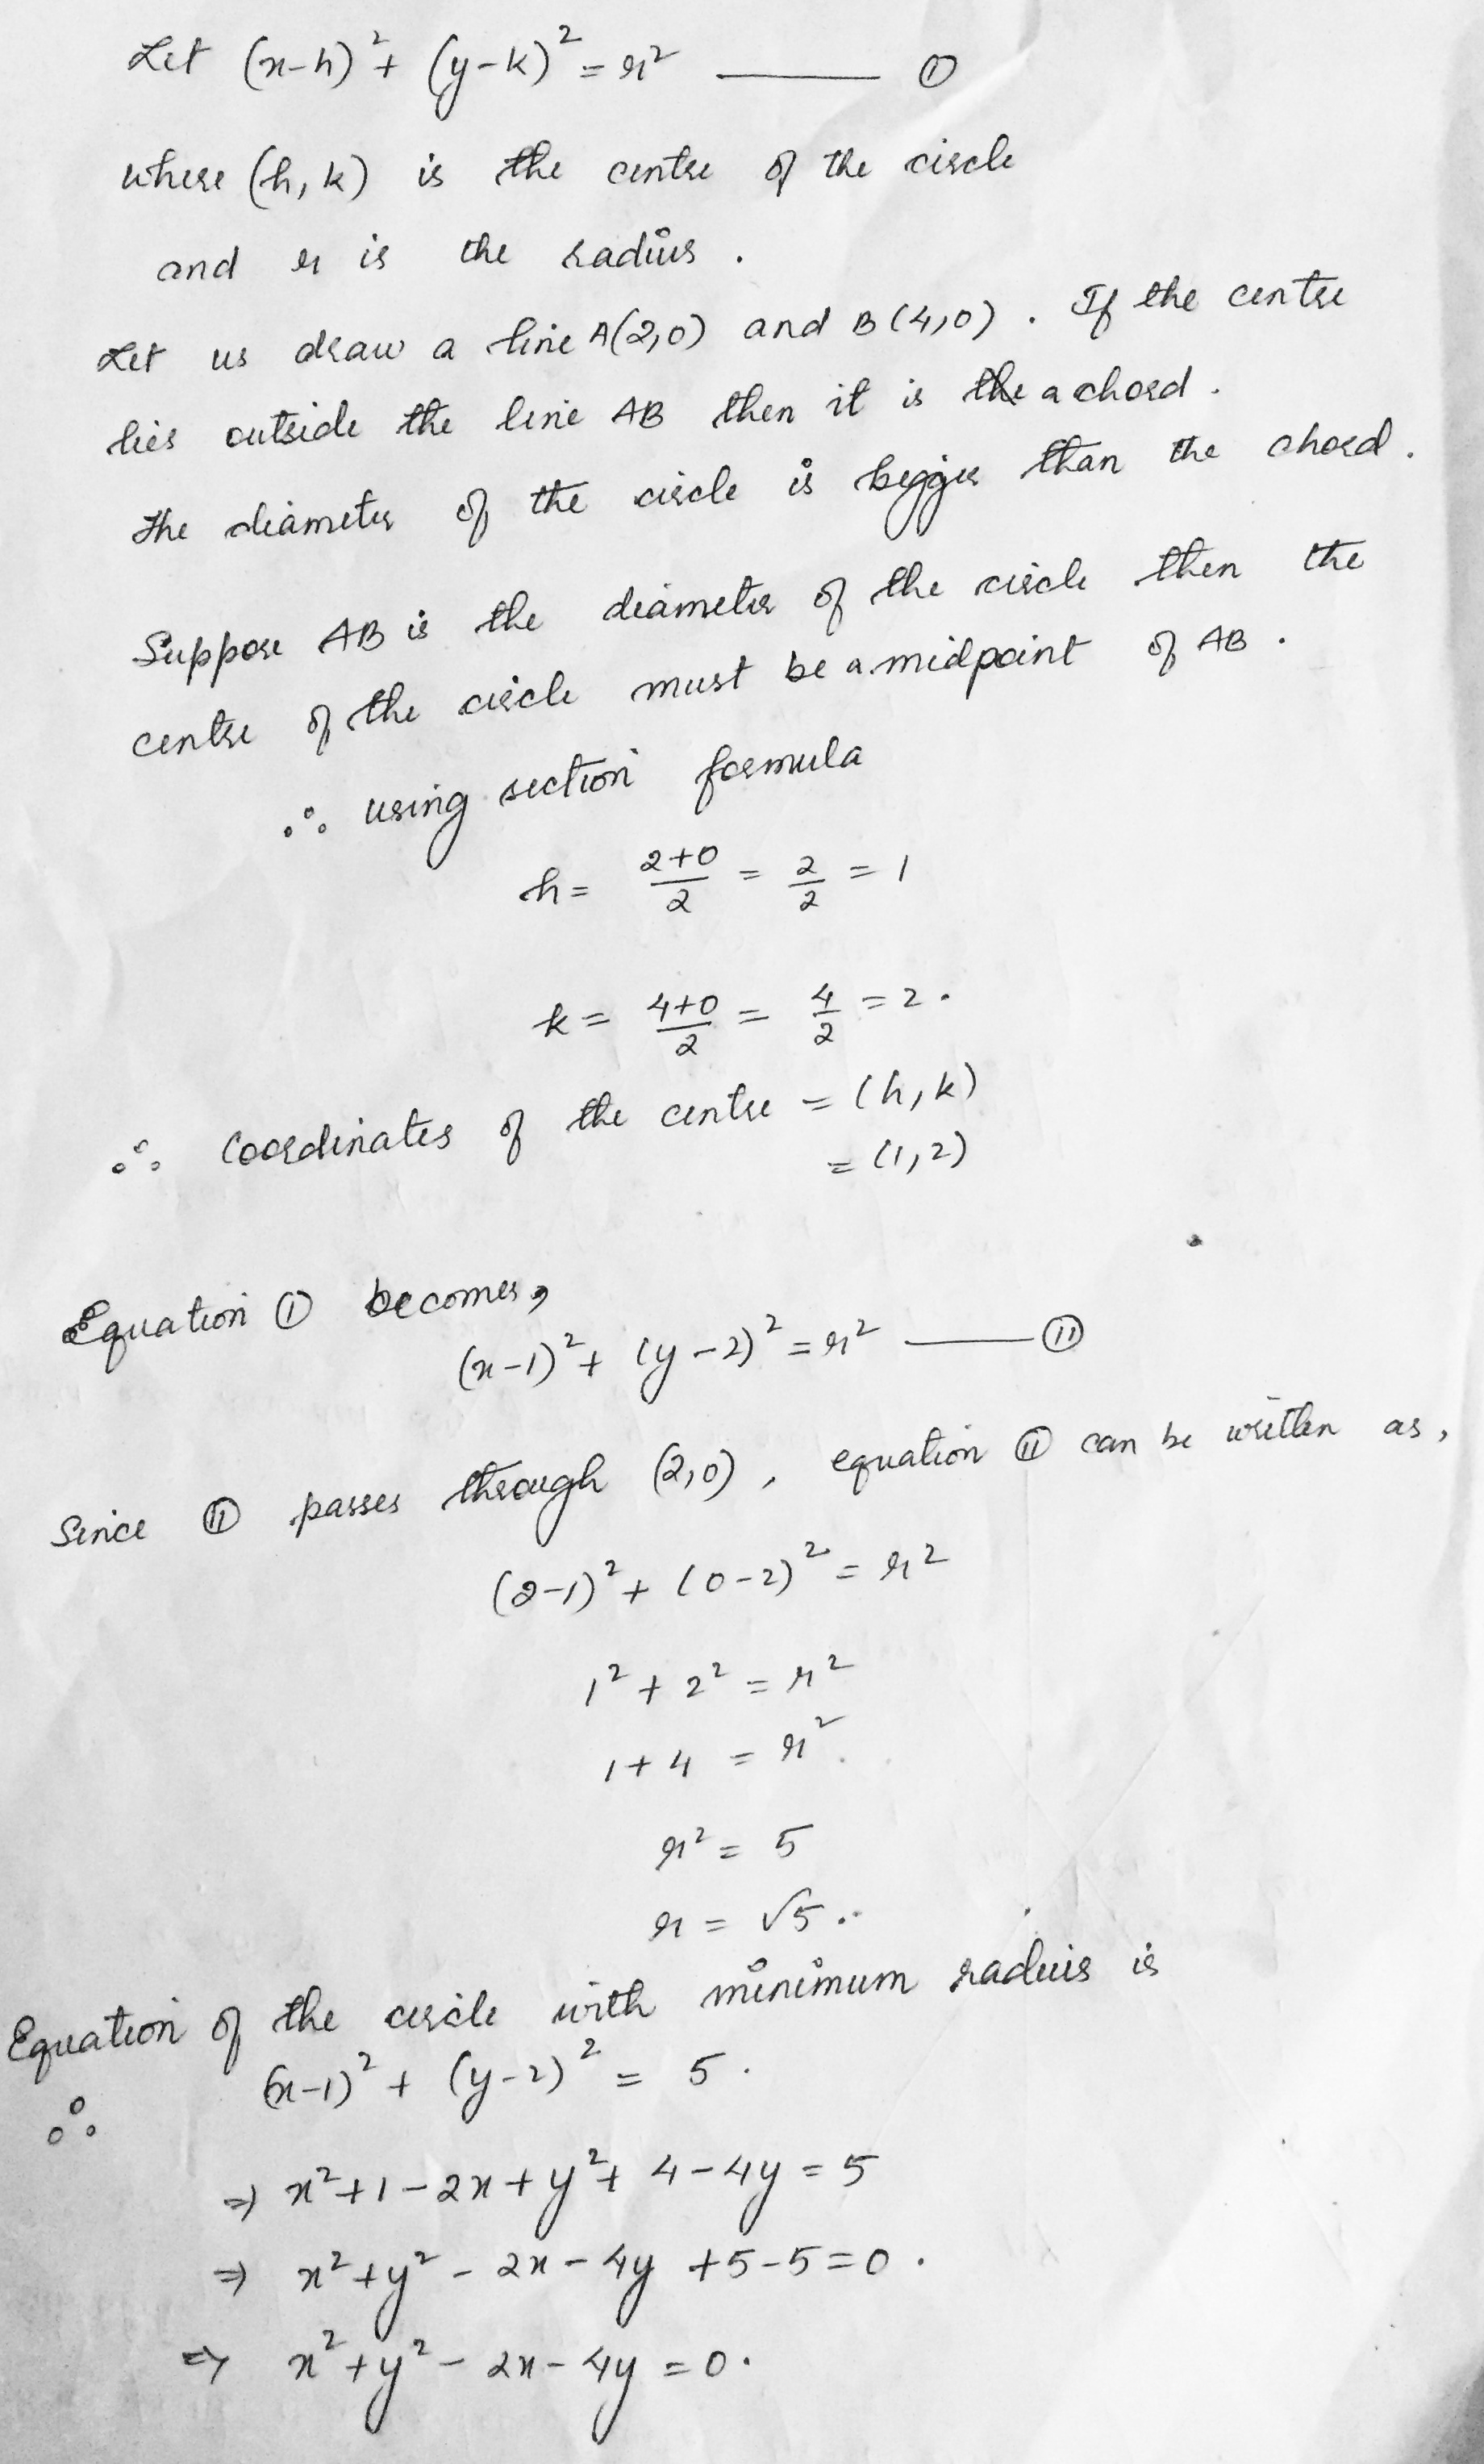 Let (x-h)² + (y-k)² = r² ——— ①
where (h, k) is the centre of the circle
and r is the radius .
Let us draw a line A(2,0) and B(4,0) . If the centre
lies outside the line AB then it is the a chord .
The diameter of the circle is bigger than the chord .
Suppose AB is the diameter of the circle then the
centre of the circle must be a midpoint of AB .
∴ using section formula
h = 2+0/2 = 2/2 = 1
k = 4+0/2 = 4/2 = 2 .
∴ Coordinates of the centre = (h, k)
= (1, 2)
Equation ① becomes,
(x-1)² + (y-2)² = r² ——— ⑪
Since ⑪ passes through (2,0) , equation ⑪ can be written as ,
(2-1)² + (0-2)² = r²
1² + 2² = r²
1 + 4 = r² .
r² = 5
r = √5 .
Equation of the circle with minimum radius is
∴ (x-1)² + (y-2)² = 5 .
⇒ x² + 1 - 2x + y² + 4 - 4y = 5
⇒ x² + y² - 2x - 4y + 5 - 5 = 0 .
⇒ x² + y² - 2x - 4y = 0 .